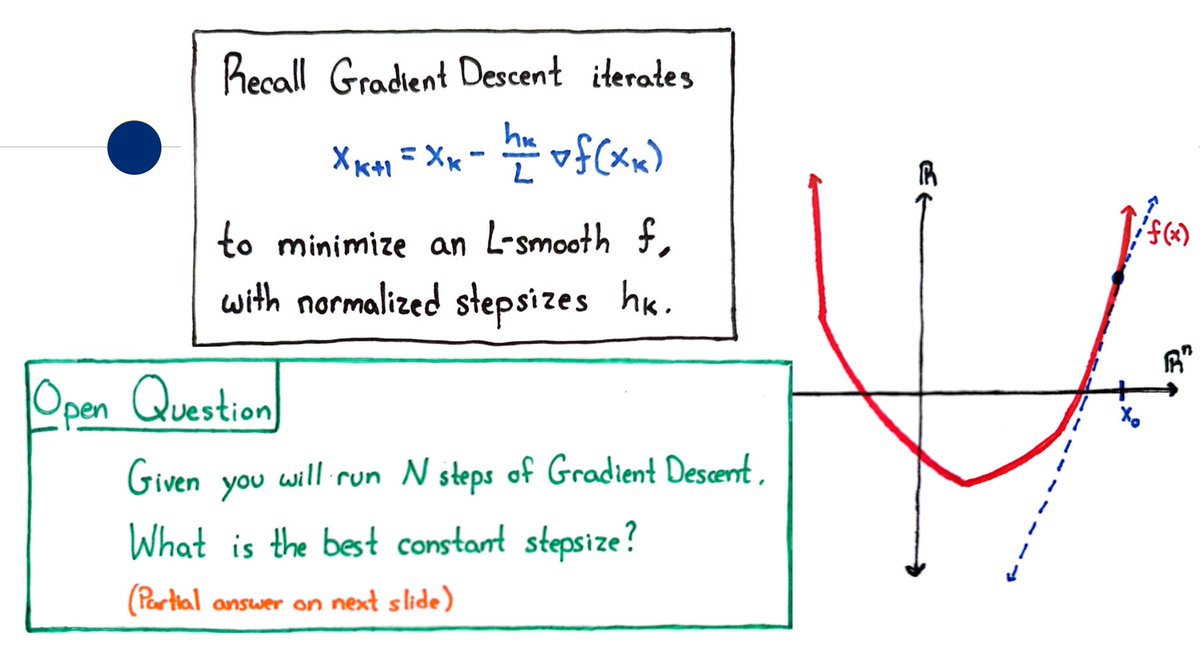 Recall Gradient Descent iterates
x_{k+1} = x_k - \frac{h_k}{L} ∇f(x_k)
to minimize an L-smooth f,
with normalized stepsizes h_k.
Open Question
Given you will run N steps of Gradient Descent.
What is the best constant stepsize?
(Partial answer on next slide)
ℝ
f(x)
ℝⁿ
x₀